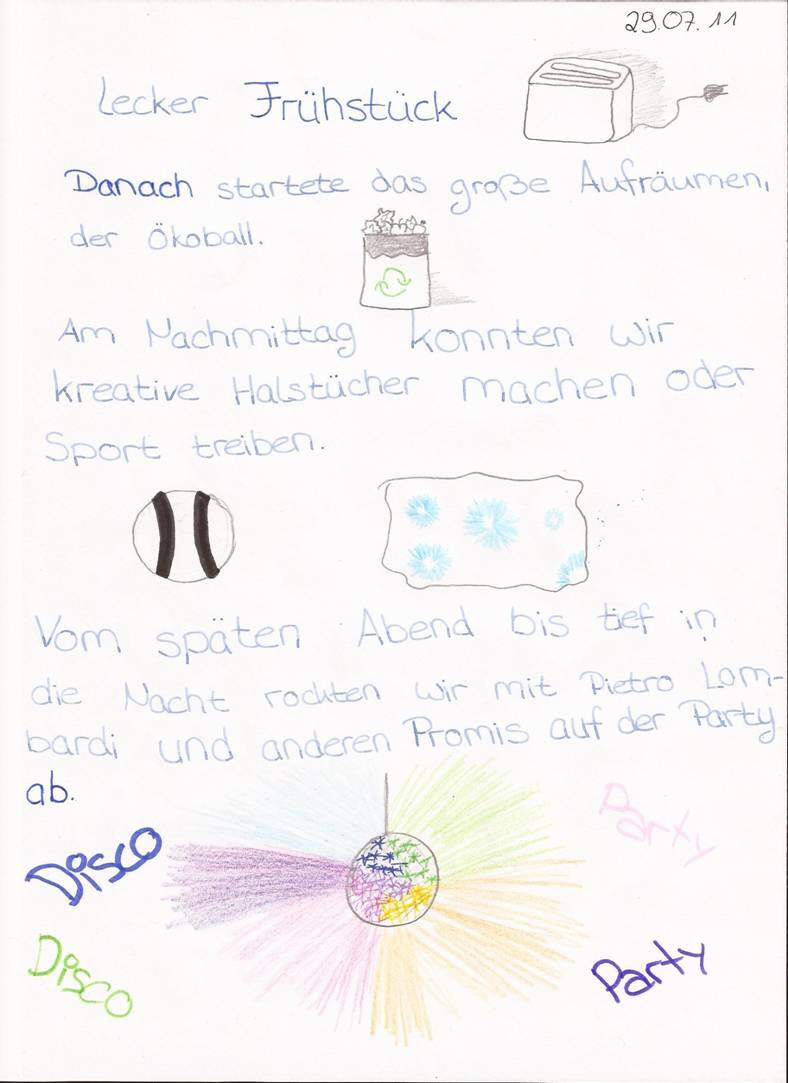 29.07.11
Lecker Frühstück
Danach startete das große Aufräumen,
der Ökoball.
Am Nachmittag konnten wir
kreative Halstücher machen oder
Sport treiben.
Vom späten Abend bis tief in
die Nacht rockten wir mit Pietro Lom-
bardi und anderen Promis auf der Party
ab.
Disco
Party
Disco
Party